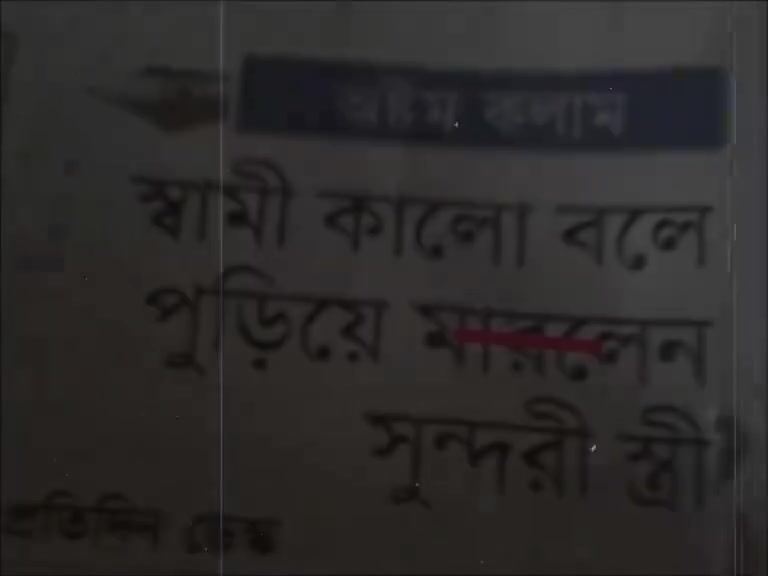 অষ্টম কলাম
স্বামী কালো বলে
পুড়িয়ে মারলেন
সুন্দরী স্ত্রী
প্রতিদিন ডেস্ক